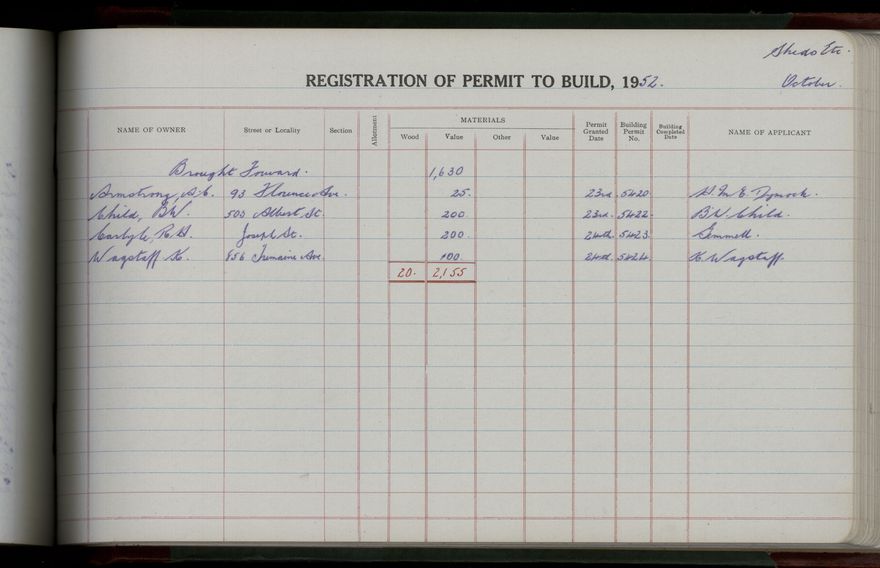 Sheds Etc.
REGISTRATION OF PERMIT TO BUILD, 1952.
October.
NAME OF OWNER Street or Locality Section Allotment MATERIALS Permit Granted Date Building Permit No. Building Completed Date NAME OF APPLICANT
Wood Value Other Value
Brought Forward. 1,630
Armstrong, A.E. 93 Florence Ave. 25. 23rd. 5420. E. Dymock.
Child, B.W. 500 Albert St. 200. 23rd. 5422. B.W. Child.
Carlyle, R.H. Joseph St. 200. 24th. 5423. Gemmell.
Wagstaff K. 856 Tremaine Ave. 100. 24th. 5424. K. Wagstaff.
20. 2,155